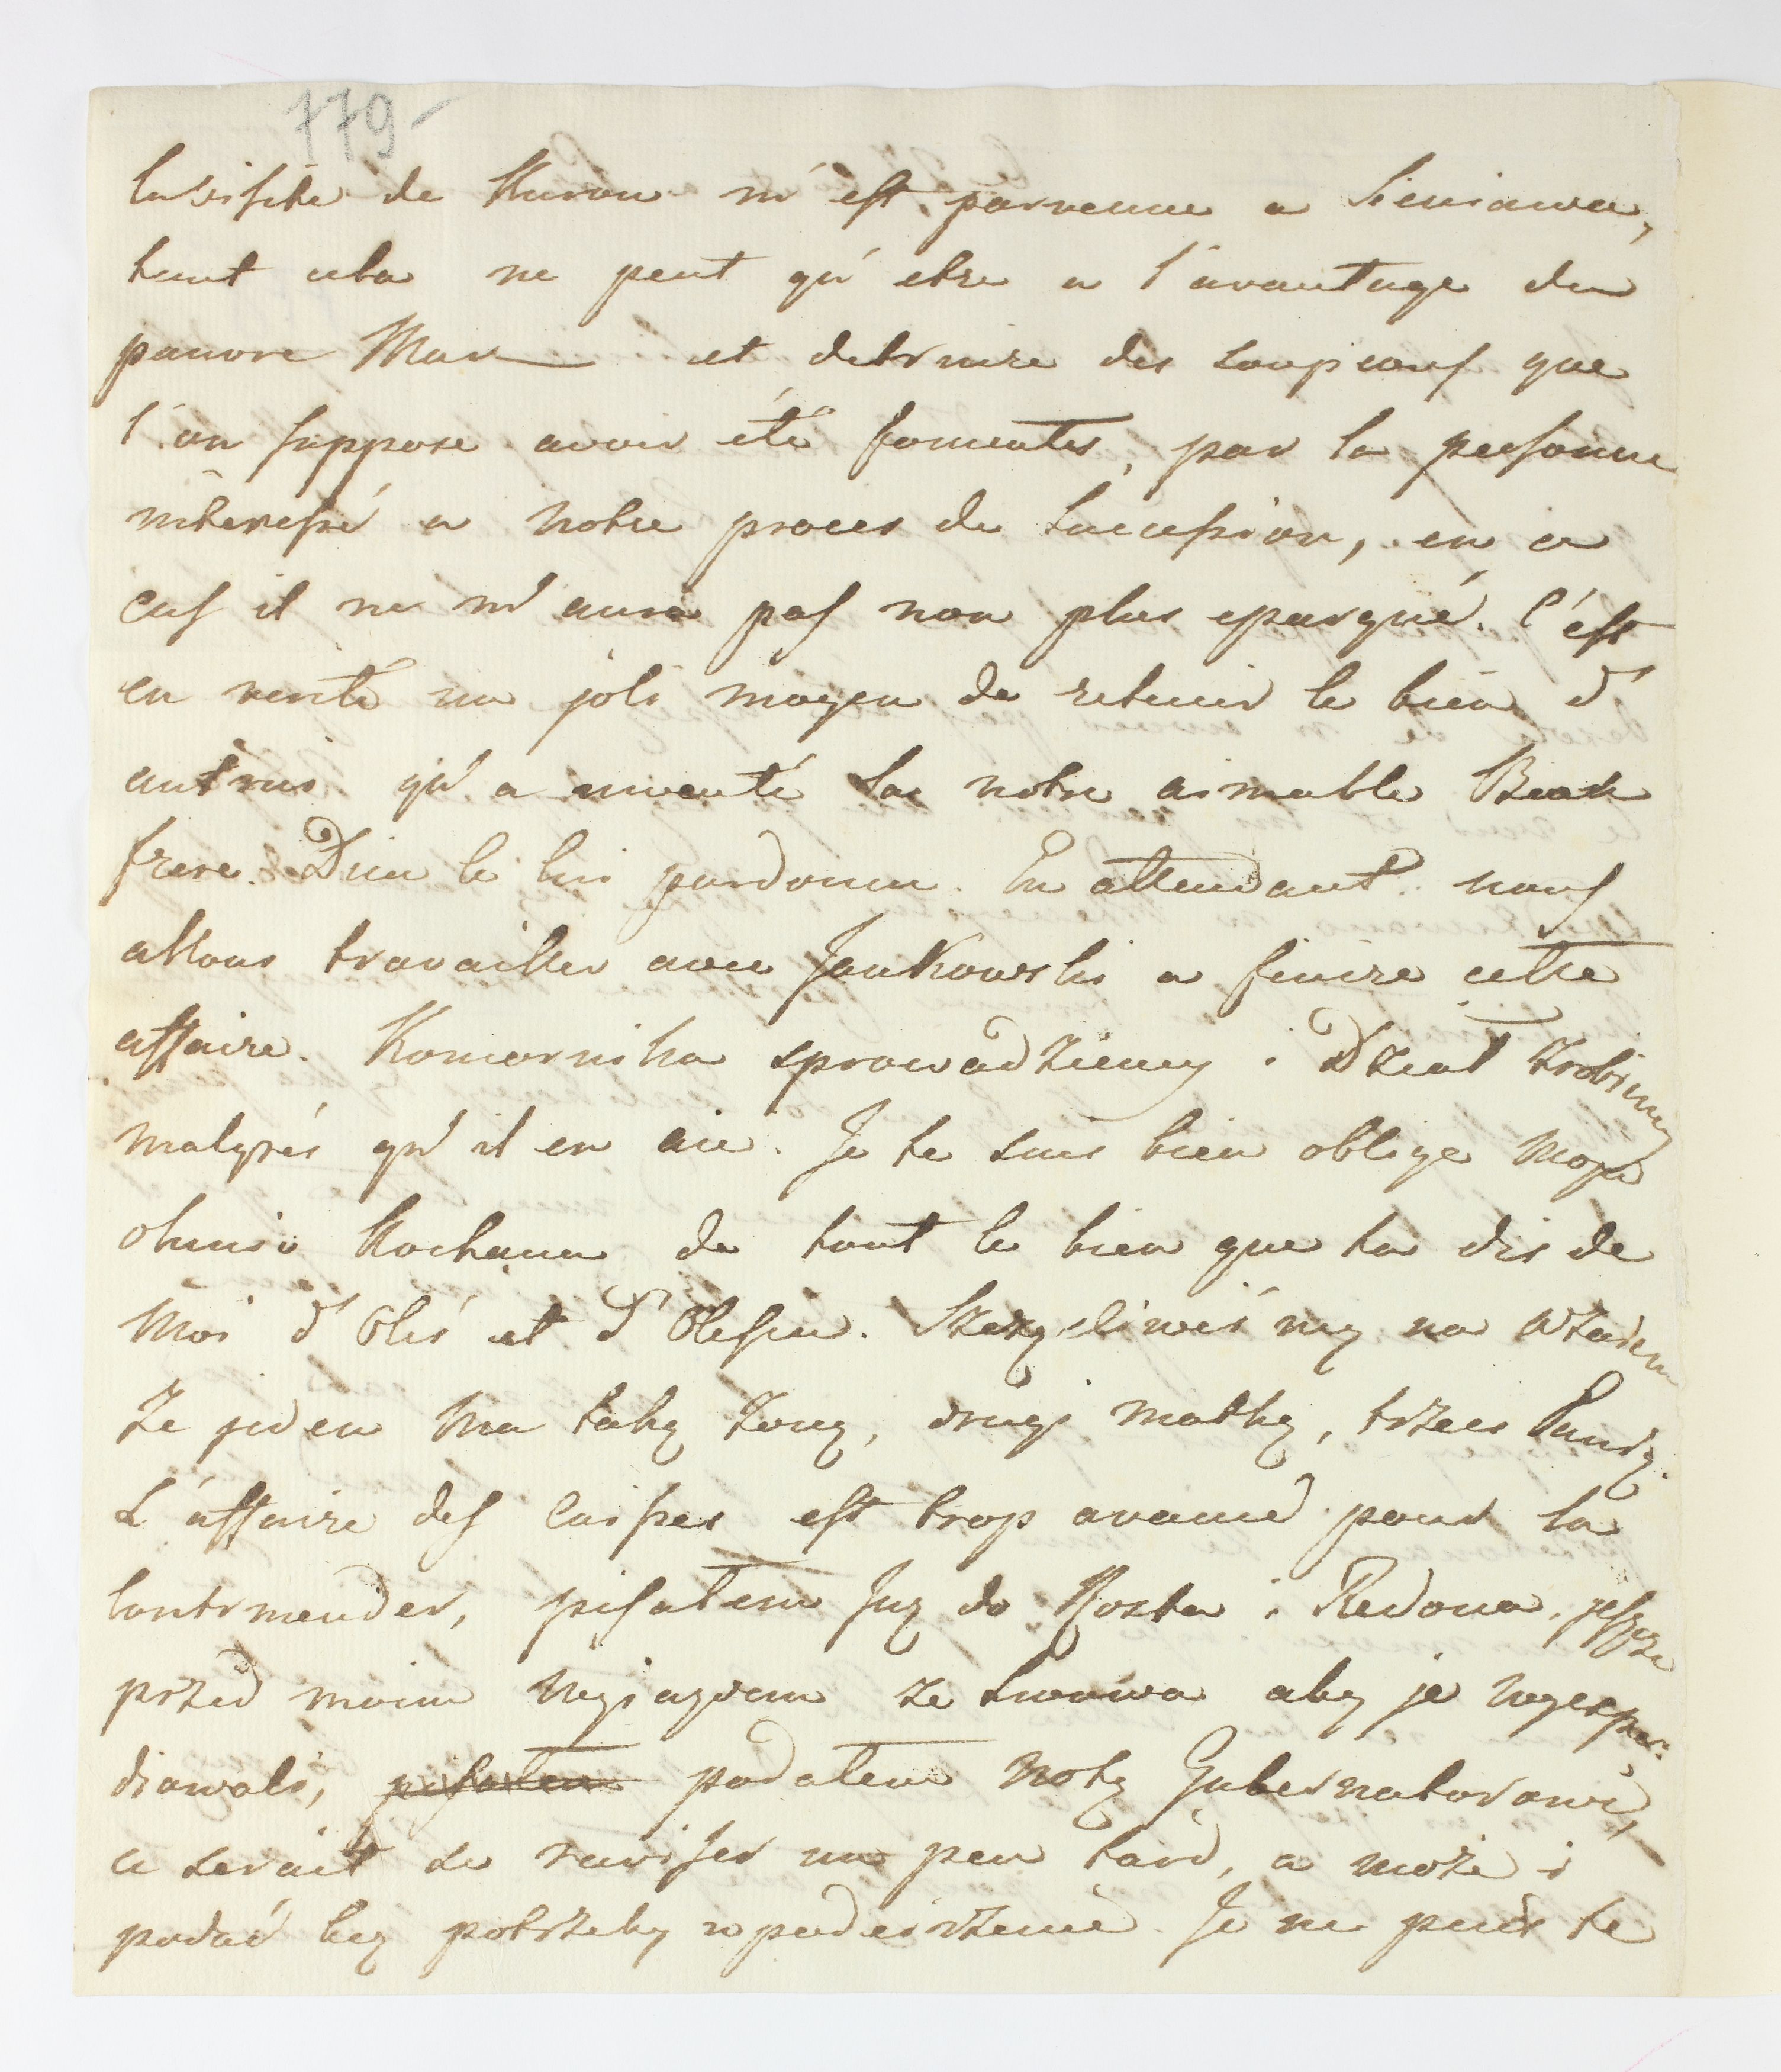 779-
la visite de Kurow m'est parvenue a Sieniawa,
tout cela ne peut qu'etre a l'avantage du
pauvre Max et detruire des soupçons que
l'on suppose avoir été fomentés, par la personne
interessé a notre proces de sucession, en ce
cas il ne m'aura pas non plus epargné. C'est
en verité un joli moyen de retenir le bien d'
autrui qu'a inventé la notre aimable Beau
frere. Dieu le lui pardonne. En attendant nous
allons travailler avec Jankowski a finire cette
affaire. Komornika sprowadziemy i Dział zrobiemy
malgrés qu'il en aie. Je te suis bien oblige moja
ohnisi Kochana de tout le bien que tu dis de
moi d'Oleś et d'Olesia. Szczęsliwiś my na wzaiem
że jeden ma taką żonę, drugi matkę, trzeci Panią.
L'affaire des Caisses est trop avancé pour la
contrmender, pisałem Juz do Rosta i Redona, jeszcze
przed moim wyjazdem ze Lwowa aby je wyexpe-
diowali, pisałem podałem notę Gubernatorowi,
ce serait se raviser un peu tard, a może i
podać bez potrzeby w podeirzenie. Je ne puis te